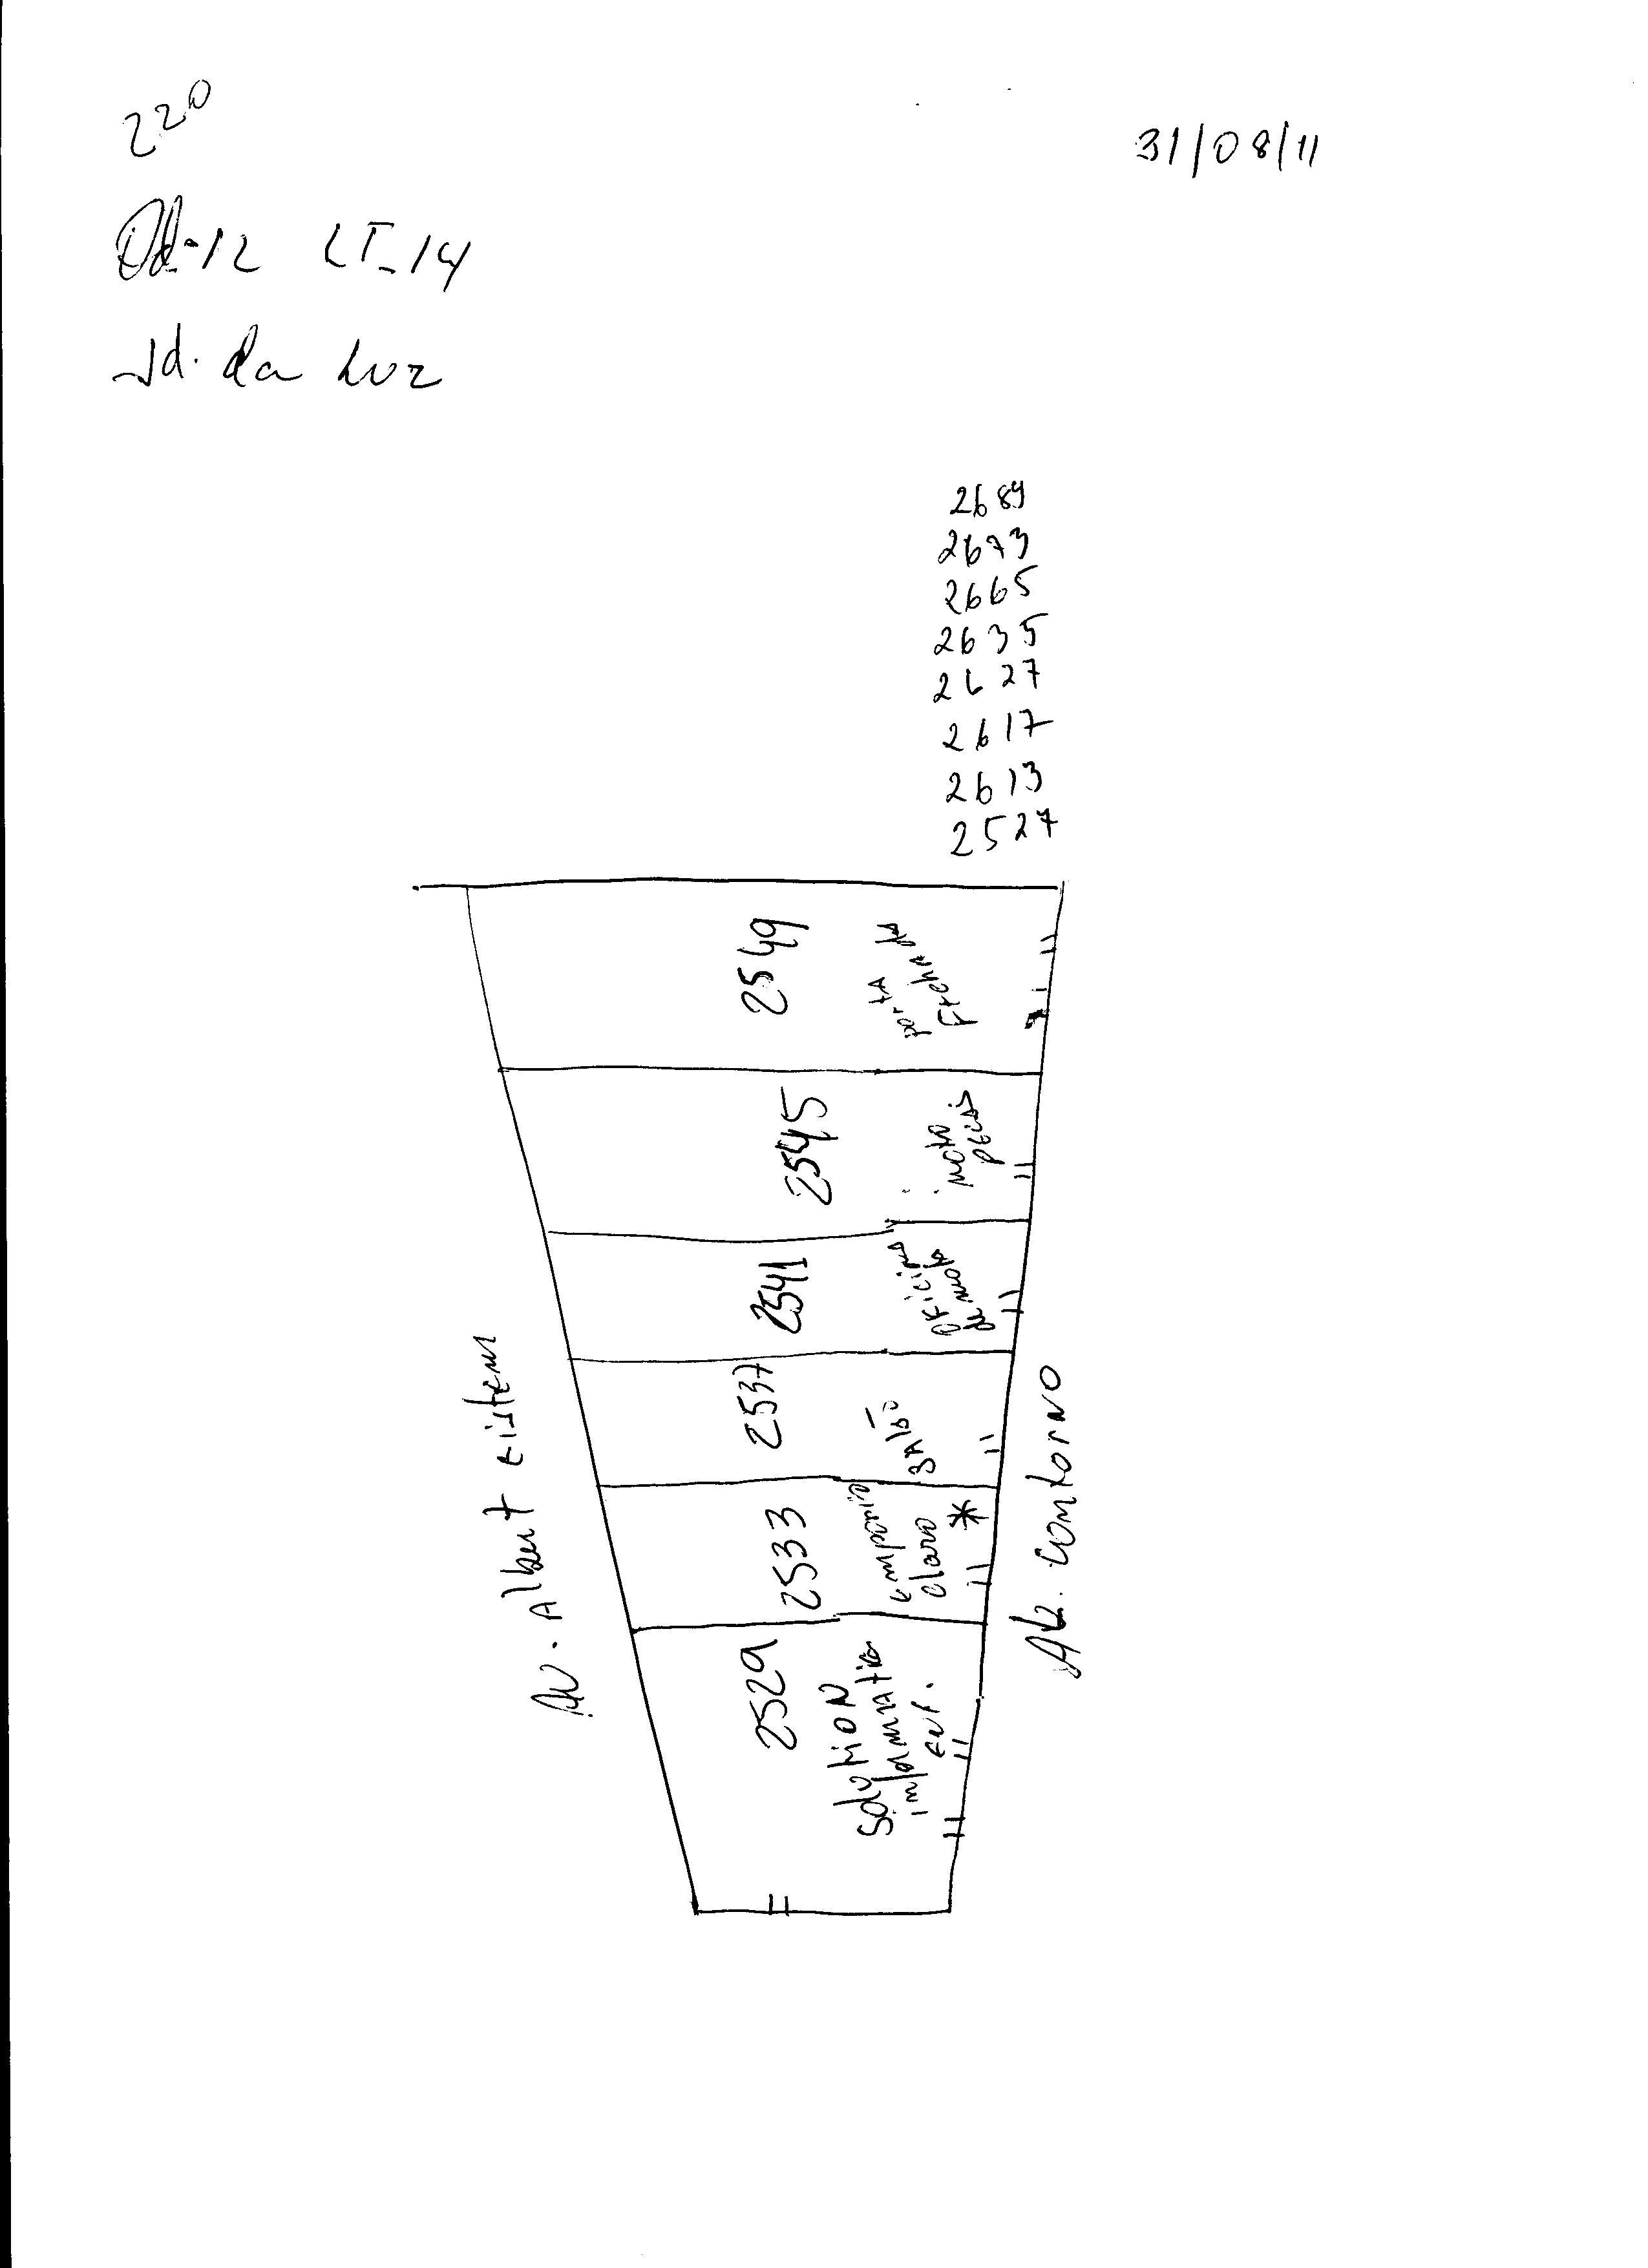 220
31/08/11
Qd-12 LT-14
Jd. da Luz
2689
2673
2665
2635
2627
2617
2613
2527
2549
porta
Fechada
2545
moto
peças
2541
oficina
de moto
2537
salão
2533
emporio
claro *
2529
solution
informatica
Av. Albert eistem
Av. contorno